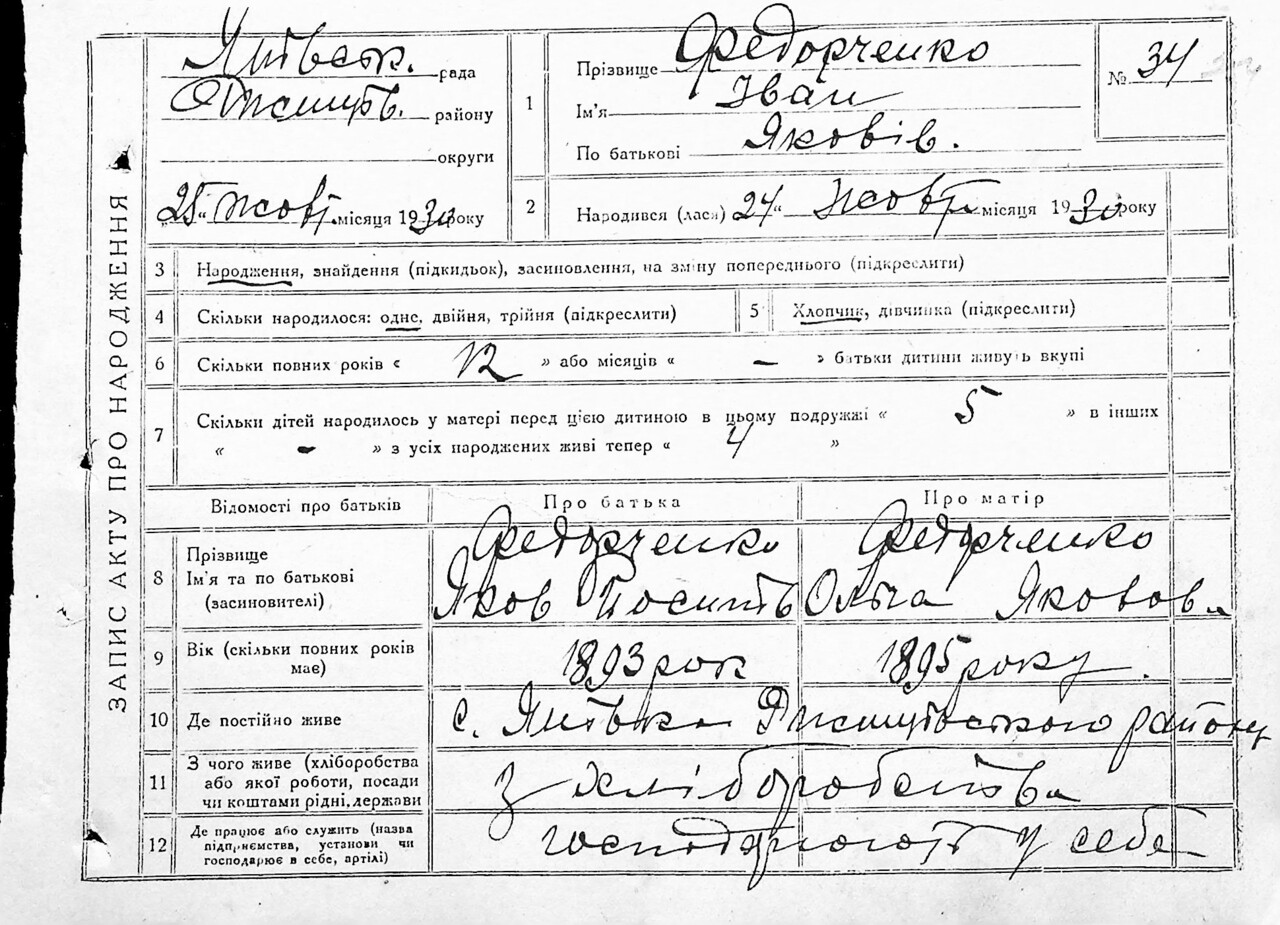 ЗАПИС АКТУ ПРО НАРОДЖЕННЯ
рада
району
округи
25 " жовт. місяця 1930 року
1
Прізвище Федорченко
Ім'я Іван
По батькові Яковів.
№ 34
2
Народився (лася) 24 " жовт. місяця 1930 року
3 Народження, знайдення (підкидьок), засиновлення, на зміну попереднього (підкреслити)
4 Скільки народилося: одне, двійня, трійня (підкреслити)
5 Хлопчик, дівчинка (підкреслити)
6 Скільки повних років « 12 » або місяців « – » батьки дитини живуть вкупі
7 Скільки дітей народилось у матері перед цією дитиною в цьому подружжі « 5 » в інших
« – » з усіх народжених живі тепер « 4 »
Відомості про батьків
Про батька
Про матір
8 Прізвище
Ім'я та по батькові
(засиновителі)
Федорченко
Яков
Федорченко
Ольга Яковов.
9 Вік (скільки повних років
має)
1893 рок
1895 року.
10 Де постійно живе
с. району
11 З чого живе (хліборобства
або якої роботи, посади
чи коштами рідні, держави
з хліборобства
12 Де працює або служить (назва
підприємства, установи чи
господарює в себе, артілі)
господарюють у себе